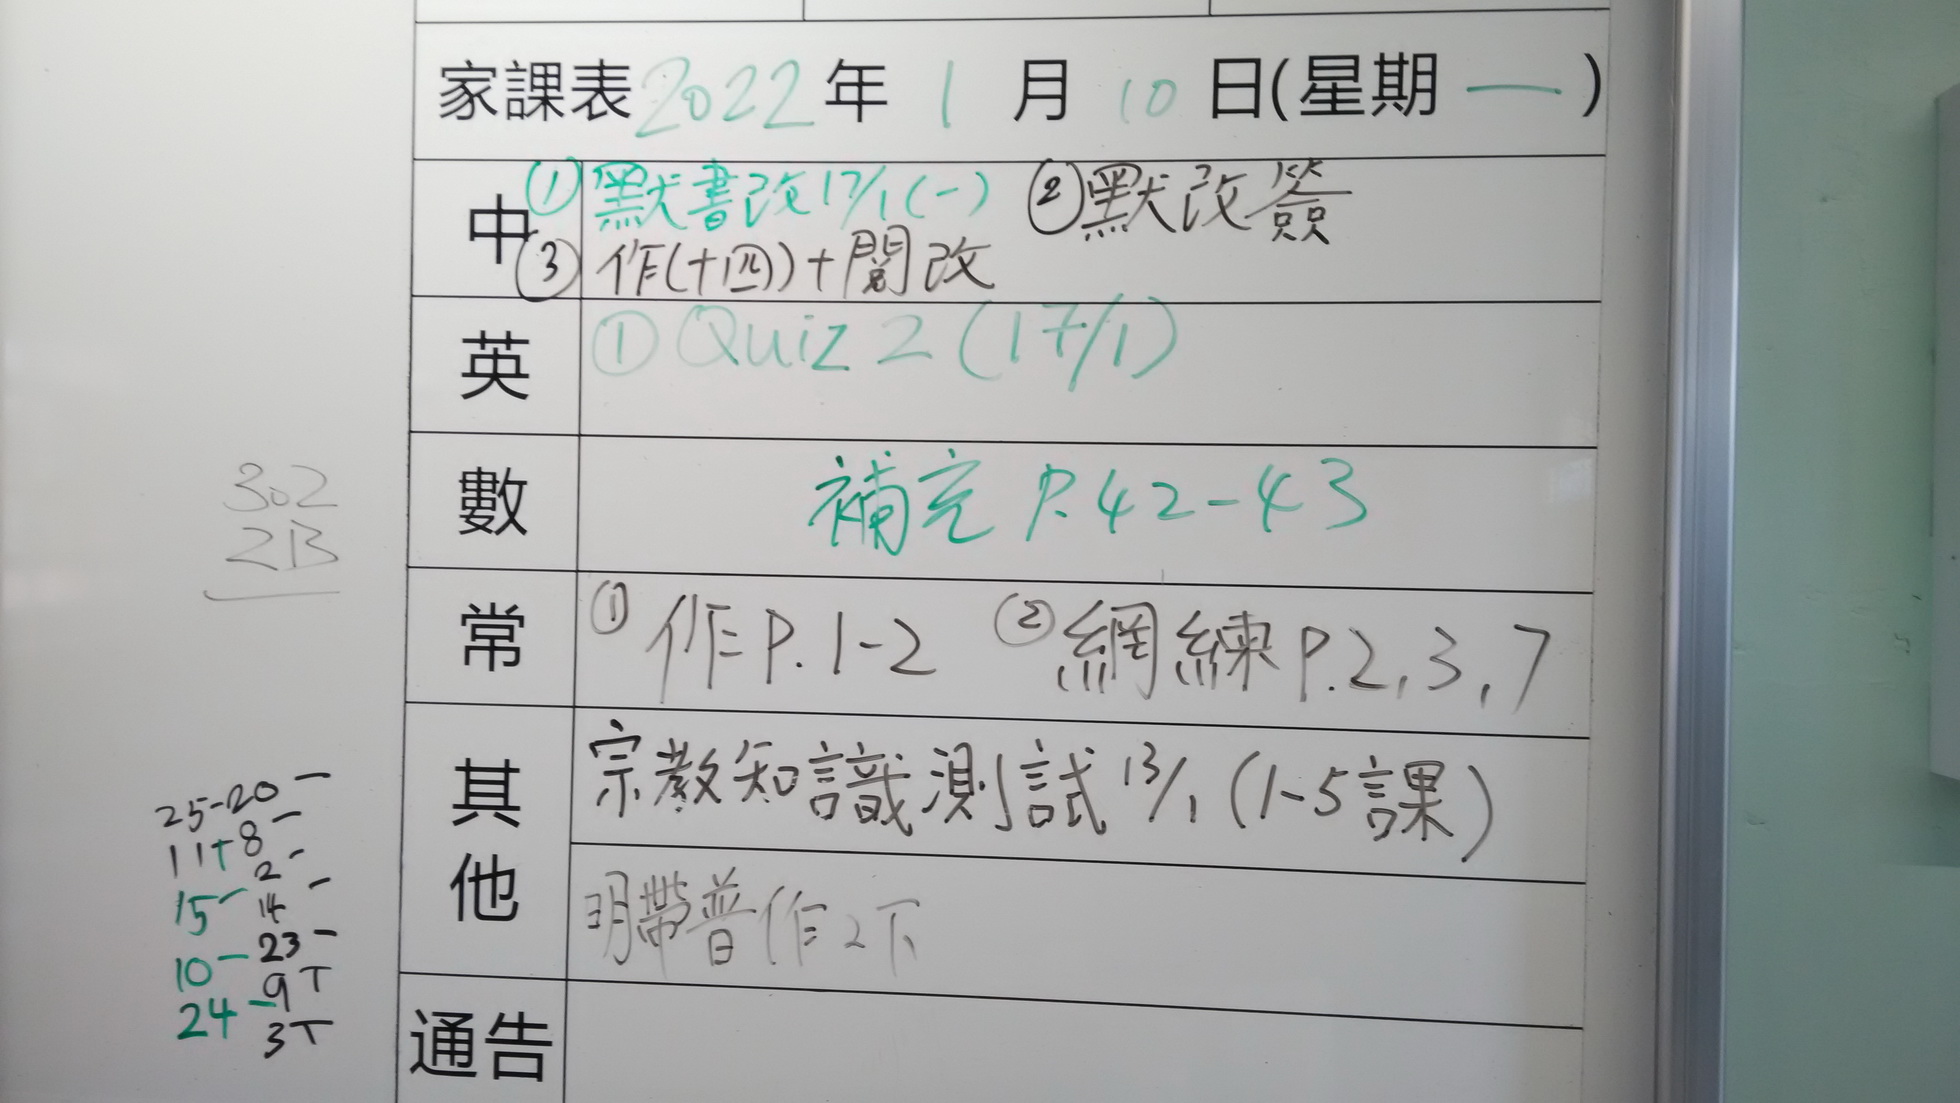 家課表 2022年 1月 10日(星期一)
中 ① 默書改 17/1 (一) ② 默改簽
③ 作(十四)+閱改
英 ① Quiz 2 (17/1)
數 補充 P.42-43
常 ① 作 P.1-2 ② 網練 P.2,3,7
其他 宗教知識測試 13/1 (1-5課)
明帶普作2下
通告
302
2B
25-20 -
11+8 -
15 - 2 -
14 -
10 - 23 -
24 - 9 T
3 T